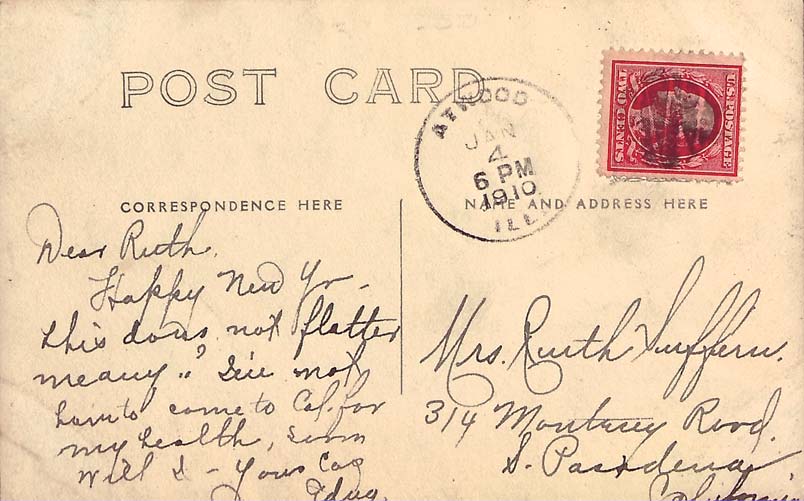 POST CARD
ATWOOD
JAN
4
6 PM
1910
ILL.
U.S. POSTAGE
TWO CENTS
CORRESPONDENCE HERE
NAME AND ADDRESS HERE
Dear Ruth,
Happy New Yr -
this does not flatter
me any
not
come to Cal. for
my health,
will I - Yours
Mrs. Ruth Suffern.
314 Monterey Road.
S. Pasadena
California